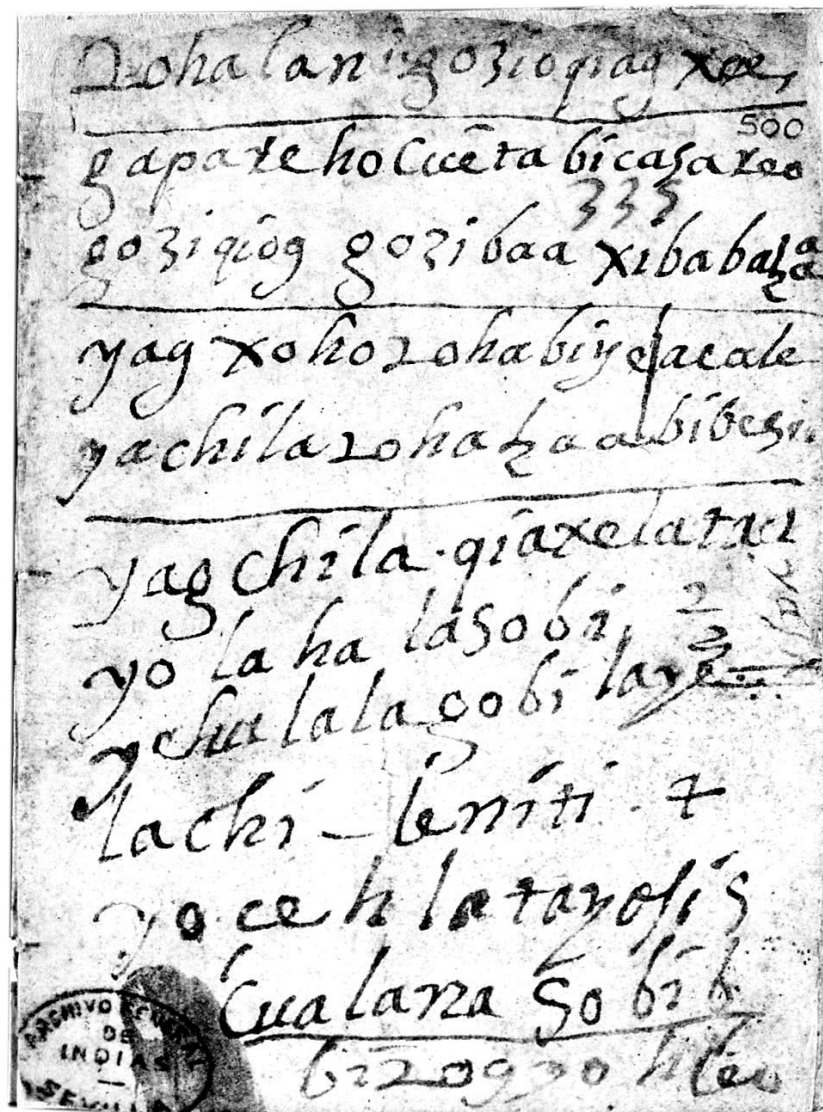 zohalani gozioqiag xoe,
500
gapareho cuēta bicasareo
335
goziqiog gozibaa xibabaza
yag xoho zohabiye lacale
yachila zoha zaa bibesi
yagchila · qiaxelatael
yo la ha lasobi
yehulalagobi laye
lachi – leniti · +
yo ce h la tayosis
Cualana sobi
ARCHIVO GENERAL
DE
INDIAS
SEVILLA